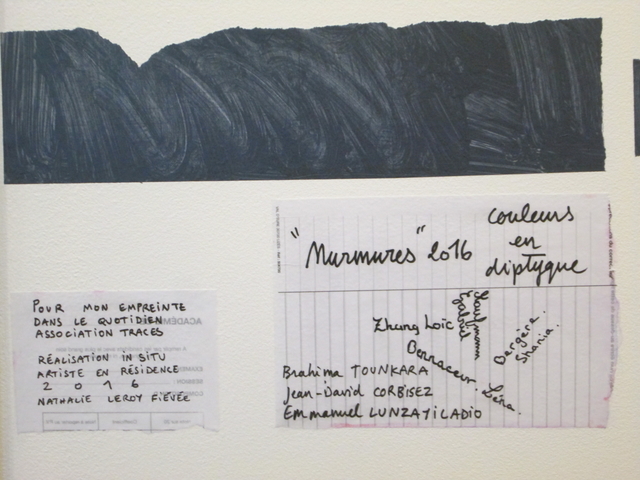 "Murmures" 2016
couleurs
en
diptyque
Zhung Loïc
Kaufmann
Gabriel
Bergère.
Shania.
Bennaceur. Léna.
Brahima TOUNKARA
Jean-David CORBISEZ
Emmanuel LUNZAYILADIO
POUR MON EMPREINTE
DANS LE QUOTIDIEN
ASSOCIATION TRACES
RÉALISATION IN SITU
ARTISTE EN RÉSIDENCE
2 0 1 6
NATHALIE LEROY FIÉVÉE